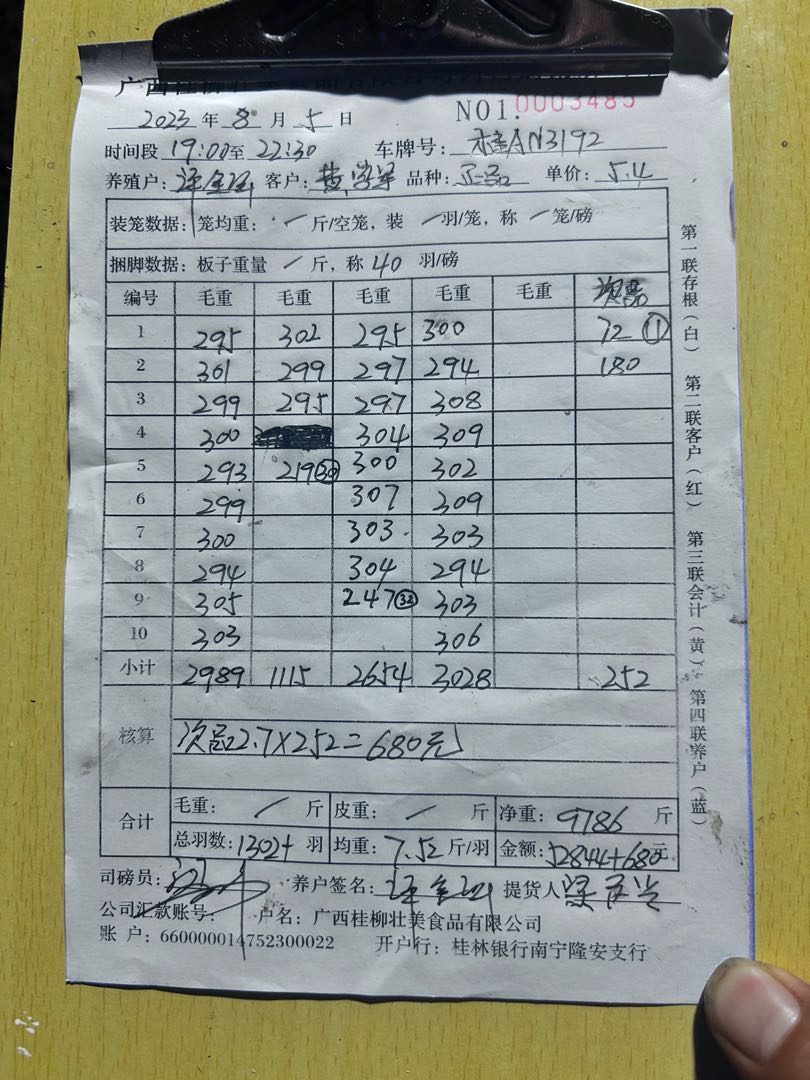 NO1.0003485
2023 年 8 月 5 日
时间段 19:00至 22:30 车牌号: 桂AN3192
养殖户: 客户: 黄 品种: 正品 单价: 5.4
装笼数据: 笼均重: / 斤/空笼, 装 / 羽/笼, 称 / 笼/磅
捆脚数据: 板子重量 / 斤, 称 40 羽/磅
编号 毛重 毛重 毛重 毛重 毛重 次品
1 295 302 295 300 72 ①
2 301 299 297 294 180
3 299 295 297 308
4 300 304 309
5 293 219 300 302
6 299 307 309
7 300 303 303
8 294 304 294
9 305 247㉜ 303
10 303 306
小计 2989 1115 2654 3028 252
核算 次品2.7×252=680元
合计 毛重: / 斤 皮重: / 斤 净重: 9786 斤
总羽数: 1302+ 羽 均重: 7.52 斤/羽 金额: 52844+680元
司磅员: 养户签名: 提货人
公司汇款账号: 户名: 广西桂柳壮美食品有限公司
账 户: 660000014752300022 开户行: 桂林银行南宁隆安支行
第一联存根(白) 第二联客户(红) 第三联会计(黄) 第四联养户(蓝)